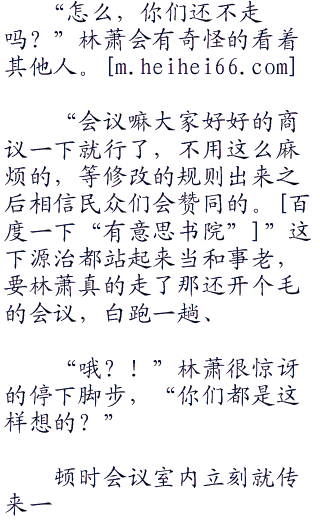 “怎么，你们还不走
吗？”林萧会有奇怪的看着
其他人。[m.heihei66.com]
“会议嘛大家好好的商
议一下就行了，不用这么麻
烦的，等修改的规则出来之
后相信民众们会赞同的。[百
度一下“有意思书院”]”这
下源治都站起来当和事老，
要林萧真的走了那还开个毛
的会议，白跑一趟、
“哦？！”林萧很惊讶
的停下脚步，“你们都是这
样想的？”
顿时会议室内立刻就传
来一